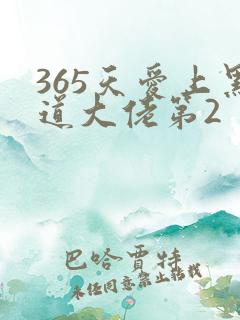 365天愛上黑
道大佬第2
巴哈賈特
未经同意禁止转载